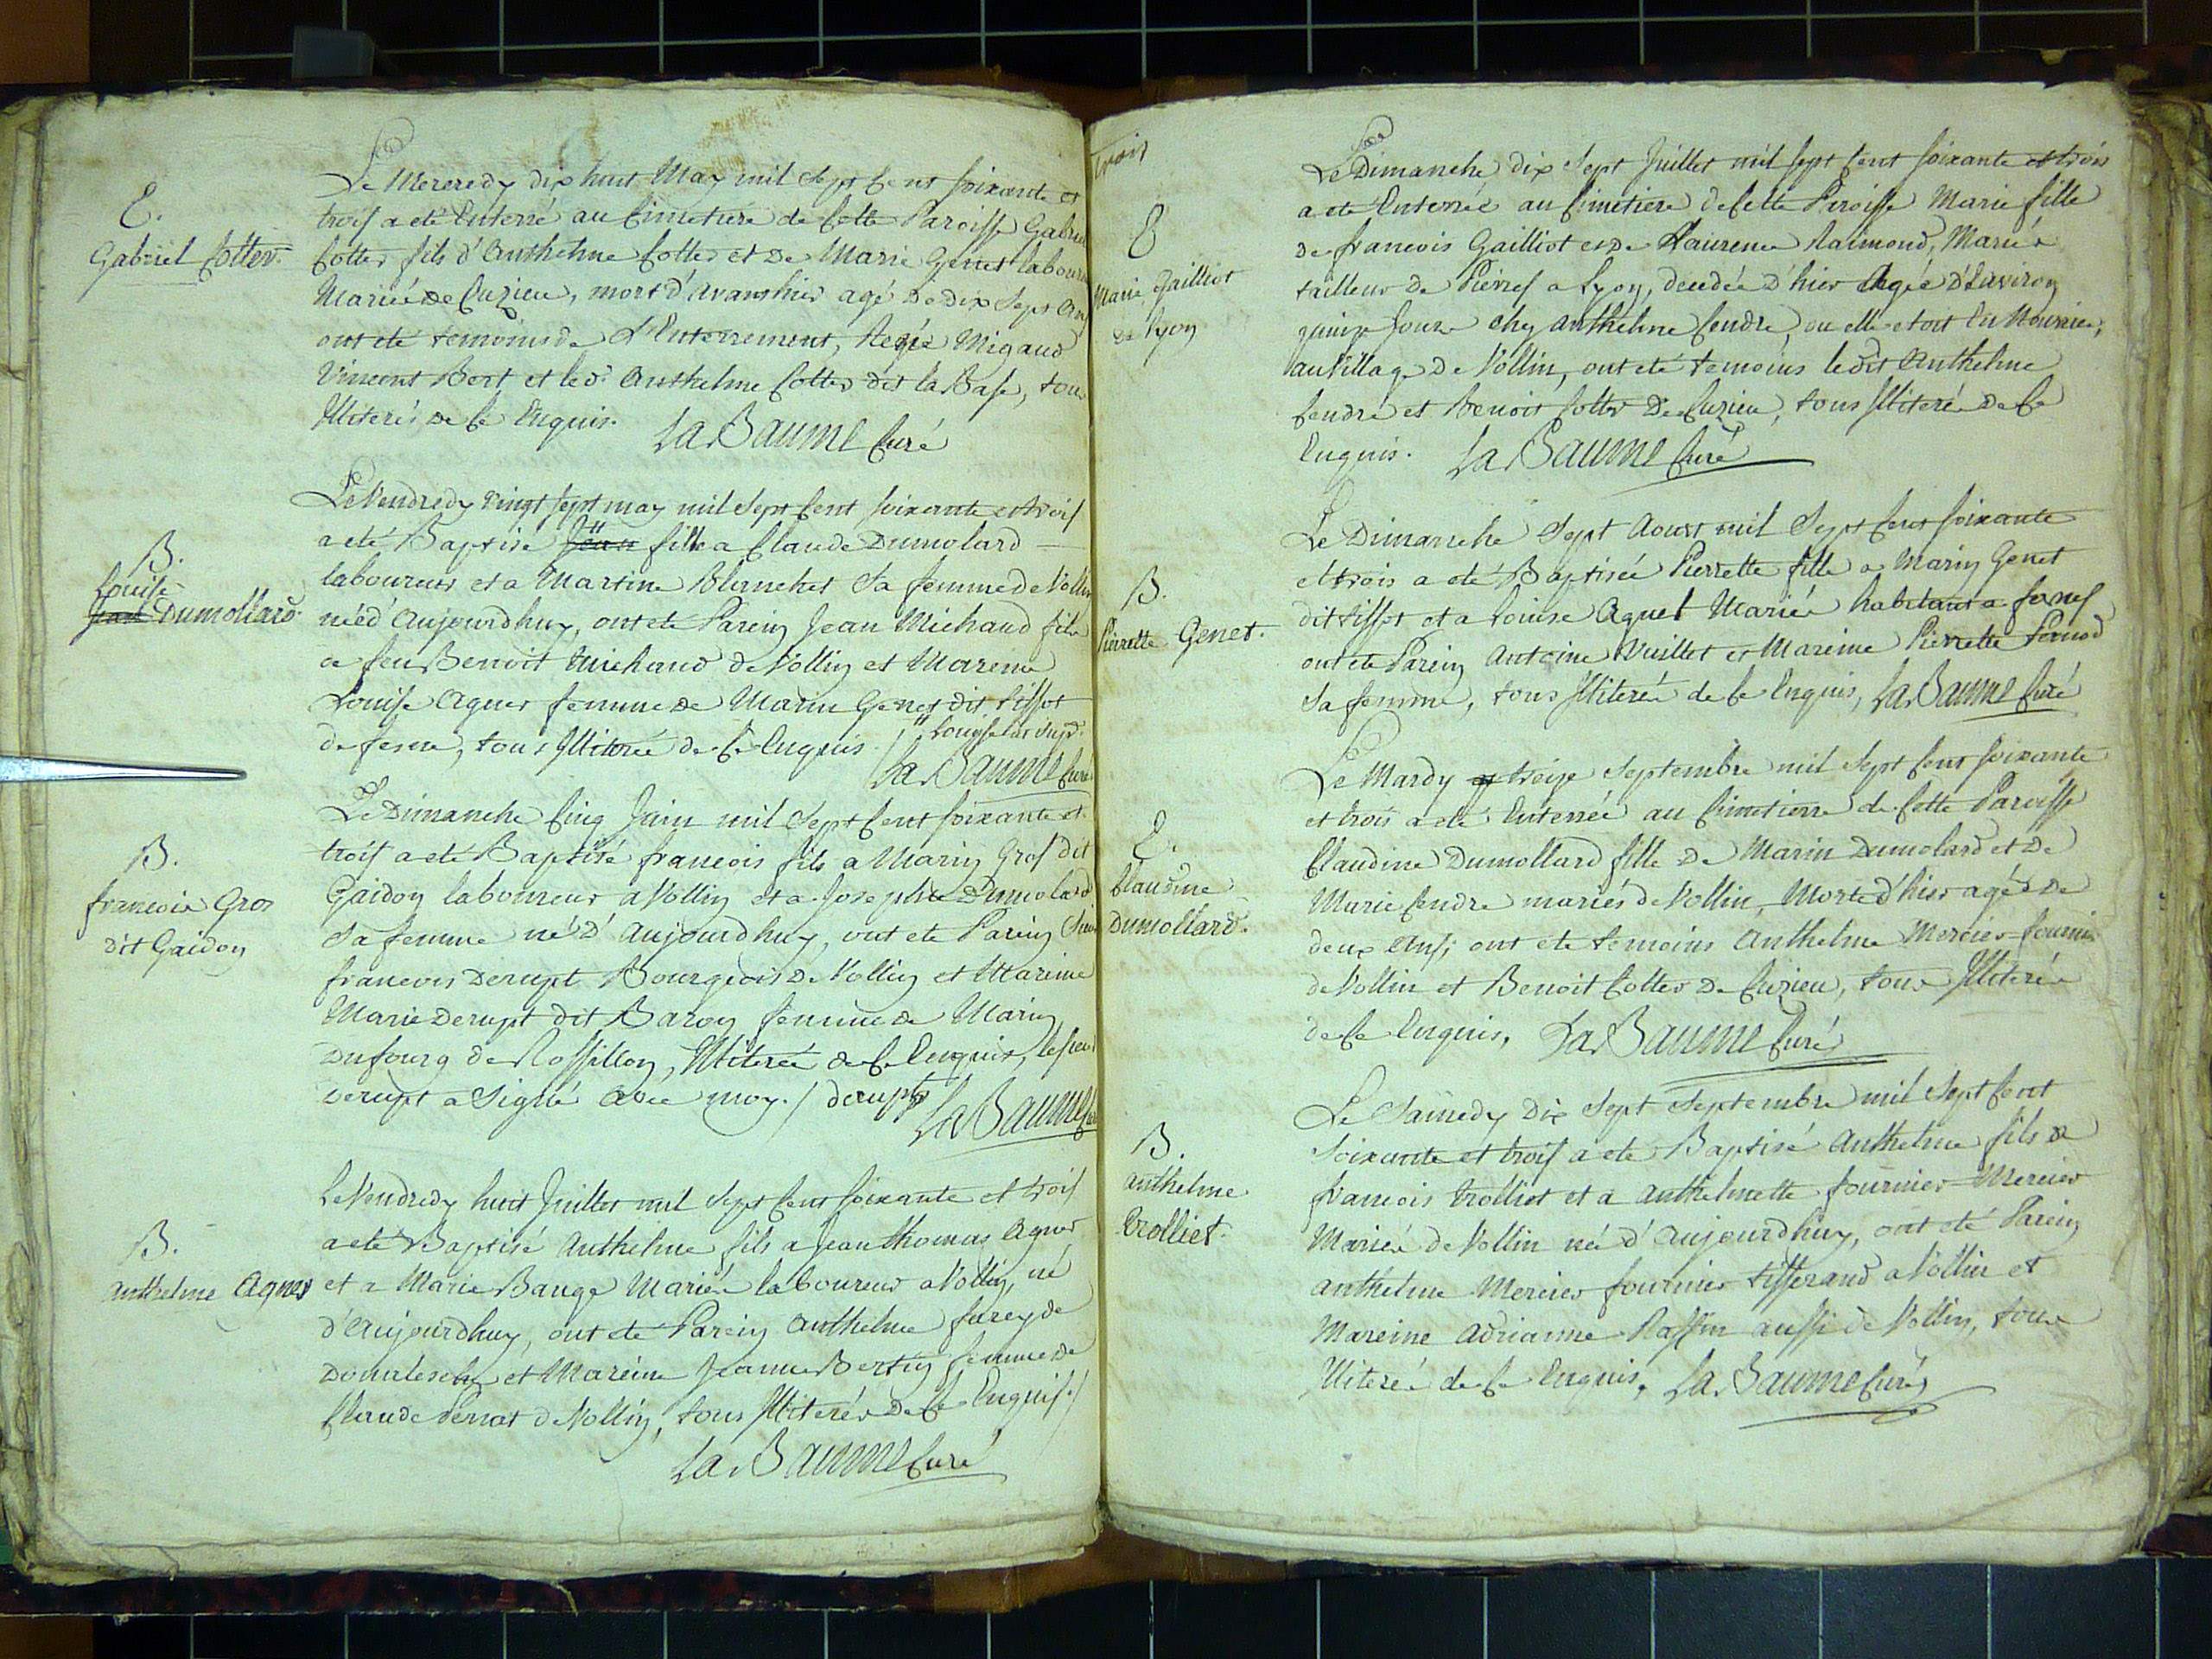 E.
Gabriel Cottet.
Le Mercredy dix huit May mil sept cent soixante et
trois a eté Enterré au Cimetiere de Cette Paroisse Gabriel
Cottet fils d'Anthelme Cottet et de Marie Genet laboureurs
Mariés de Cuzieu, mort d'avanthier agé de dix sept ans
ont eté temoins de L'Enterrement, Migaud
Vincent Bert et led. Anthelme Cottet dit la Base, tous
Illiterés de ce Enquis. La Baume Curé
B.
Louise
Jean Dumollard
Le Vendredy vingt sept may mil sept cent soixante et trois
a eté Baptisé Jean fille a Claude Dumolard
laboureur et a Martine Blanchet sa femme de Vollin
néé d'Aujourdhuy, ont eté Parein Jean Michaud fils
a feu Benoit Michaud de Vollin et Mareine
Louise Agnet femme de Marin Genet dit tissot
de tous Illiterés de ce Enquis. Louise
La Baume Curé
B.
francois Gros
dit Gaidon
Le Dimanche Cinq Juin mil sept cent soixante et
trois a eté Baptisé francois fils a Marin Gros dit
Gaidon laboureur a Vollin et a Josephte Dumolard
sa femme né d'Aujourdhuy, ont eté Parein Sieur
francois Derupt Bourgeois de Vollin et Mareine
Marie Derupt dit Baron femme de Marin
Dufourg de Rossillon, Illiterée de ce Enquis, le sieur
Derupt a Signé avec moy./ derupt
La Baume Curé
B.
Anthelme Agnet
Le Vendredy huit Juillet mil sept cent soixante et trois
a eté Baptisé Anthelme fils a Jean thomas Agnet
et a Marie Bauge Mariés laboureurs a Vollin, né
d'Aujourdhuy, ont eté Parein Anthelme furey de
et Mareine Jeanne Bertin femme de
Claude Pernat de Vollin, tous Illiterés de ce Enquis./
La Baume Curé
trois
E
Marie Gailliot
de Lyon
Le Dimanche dix sept Juillet mil sept cent soixante et trois
a eté Enterrée au Cimetiere de Cette Paroisse Marie fille
de francois Gailliot et de Laurence Raimond, Mariés
tailleur de Pierres a Lyon, decedée d'hier Agée d'Environ
quinze Jours chez Anthelme Cendre, ou elle etoit En Nourrice,
au Village de Vollin, ont eté temoins ledit Anthelme
Cendre et Benoit Cottet de Cuzieu, tous Illiterés de ce
Enquis. La Baume Curé
B.
Pierrette Genet.
Le Dimanche Sept Aoust mil sept cent soixante
et trois a eté Baptisée Pierrette fille a Marin Genet
dit tissot et a Louise Agnet Mariés habitants a
ont eté Parein Antoine Vuillet et Mareine Pierrette Pernod
sa femme, tous Illiterés de ce Enquis, La Baume Curé
E.
Claudine
Dumollard.
Le Mardy treize Septembre mil sept cent soixante
et trois a eté Enterrée au Cimetiere de Cette Paroisse
Claudine Dumollard fille de Marin Dumolard et de
Marie Cendre mariés de Vollin, Morte d'hier agée de
deux Ans; ont eté temoins Anthelme Mercier fournier
de Vollin et Benoit Cottet de Cuzieu, tous Illiterés
de ce Enquis, La Baume Curé
B.
anthelme
trolliet.
Le Samedy Dix Sept Septembre mil sept cent
soixante et trois a eté Baptisé Anthelme fils a
francois trolliet et a Anthelmette fournier Mercier
Mariés de Vollin né d'Aujourdhuy, ont eté Parein
Anthelme Mercier fournier tisserand a Vollin et
Mareine Adrianne Rassin aussi de Vollin, tous
Illiterés de ce Enquis, La Baume Curé